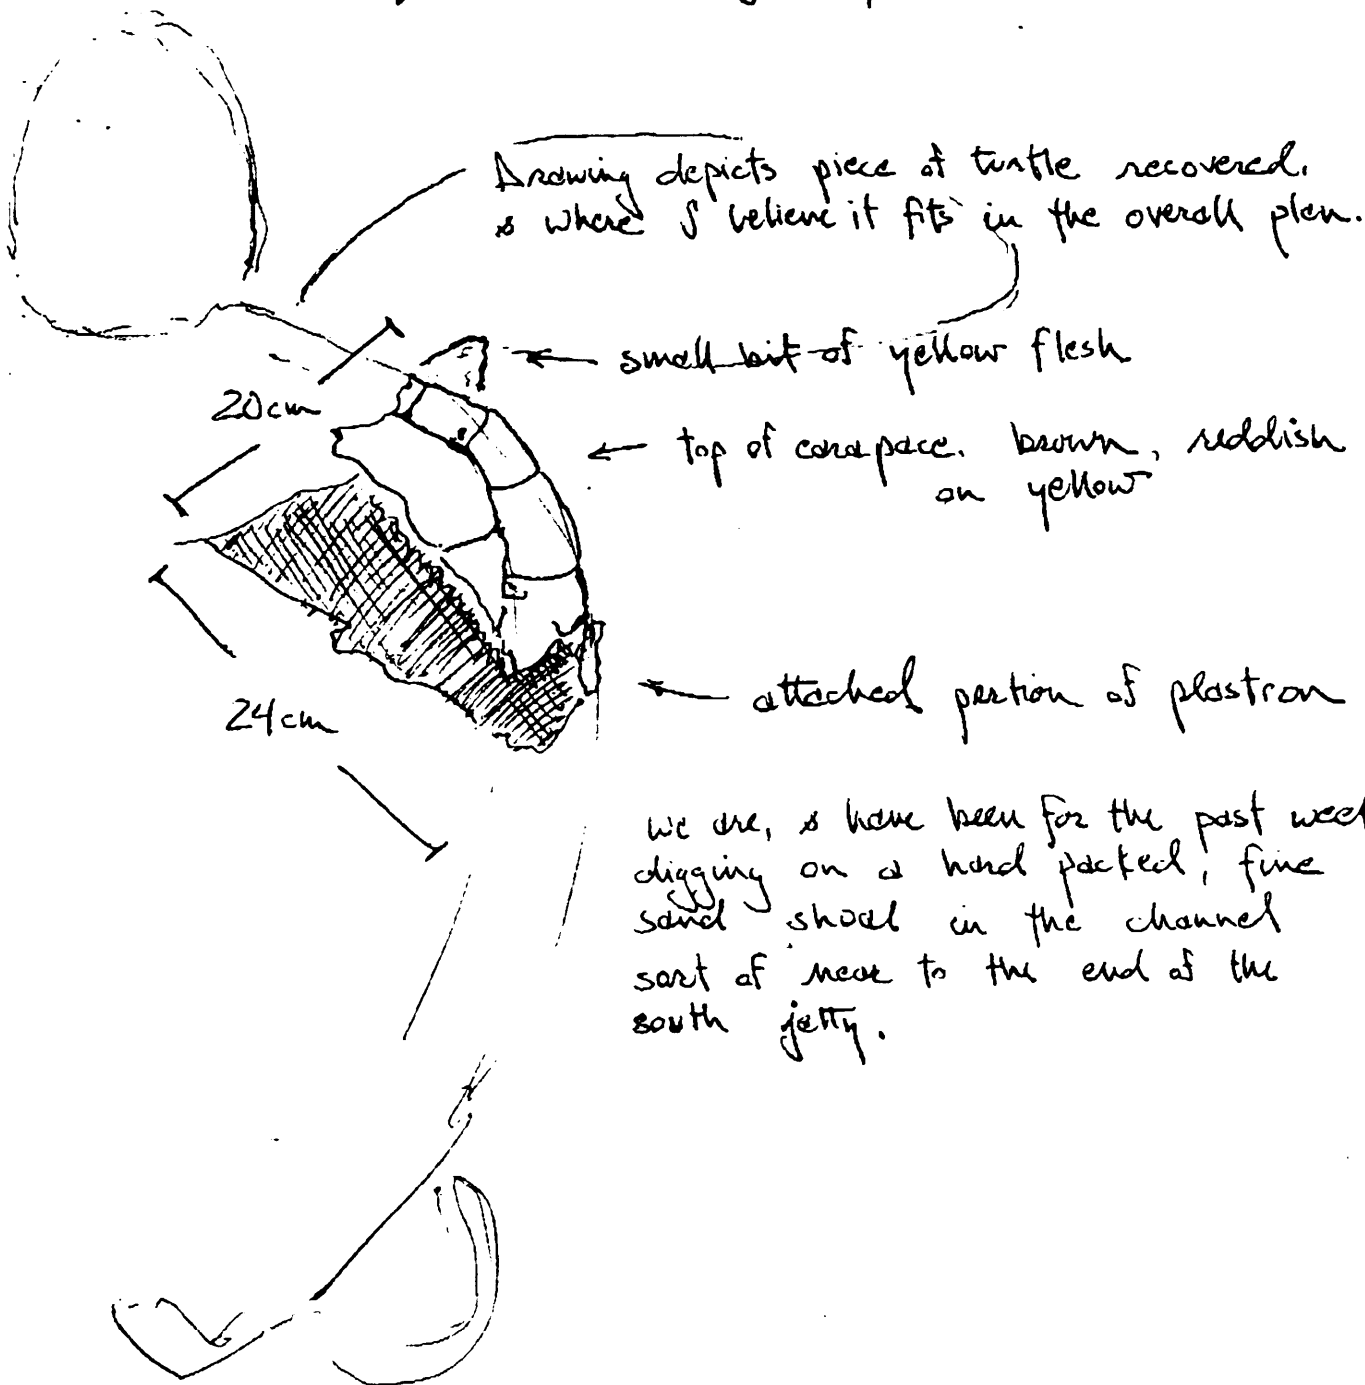 Drawing depicts piece of turtle recovered.
& where I believe it fits in the overall plan.
small bit of yellow flesh
20cm
top of carapace. brown, reddish
on yellow
attached portion of plastron
24cm
we are, & have been for the past week
digging on a hard packed, fine
sand shoal in the channel
sort of near to the end of the
south jetty.